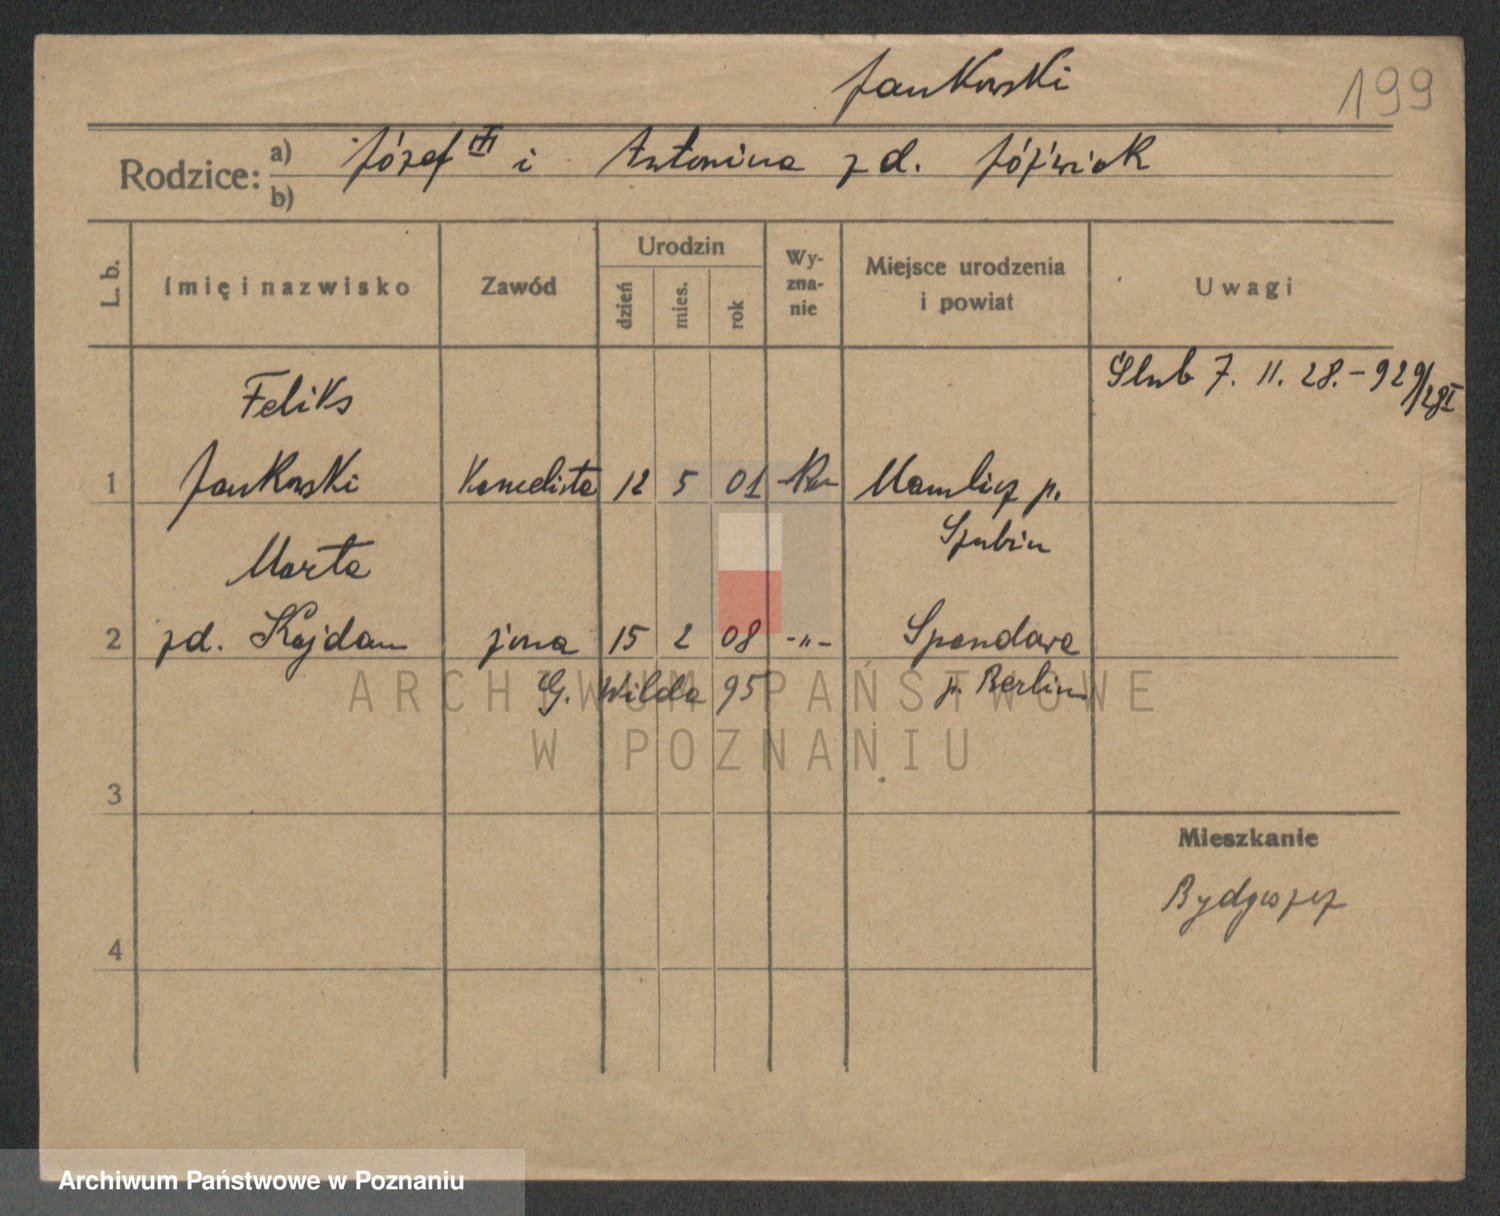 Jankowski
199
Rodzice: a) Józef i Antonina zd. Jóźwiak
b)
L. b.
Imię i nazwisko
Zawód
Urodzin
dzień
mies.
rok
Wy-
zna-
nie
Miejsce urodzenia
i powiat
Uwagi
Ślub 7. 11. 28. - 929/28I
Feliks
1 Jankowski Kancelista 12 5 01 Mamlicz p.
Szubin
Marta
2 zd. Kajdan żona 15 2 08 -"- Spandawa
G. Wilda 95 p. Berlin
3
4
Mieszkanie
Bydgoszcz
ARCHIWUM PAŃSTWOWE
W POZNANIU
Archiwum Państwowe w Poznaniu